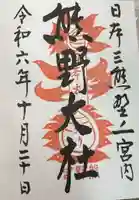 日本三熊野之宮内
熊野大社
令和六年十月二十日